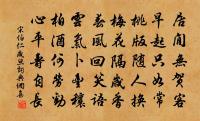 居閒無賀客
早起只如常
桃版隨人換
梅花隔歲香
春風回笑語
雲氣卜豐穰
柏酒何勞勸
心平壽自長
宋伯仁歲旦詞典網集